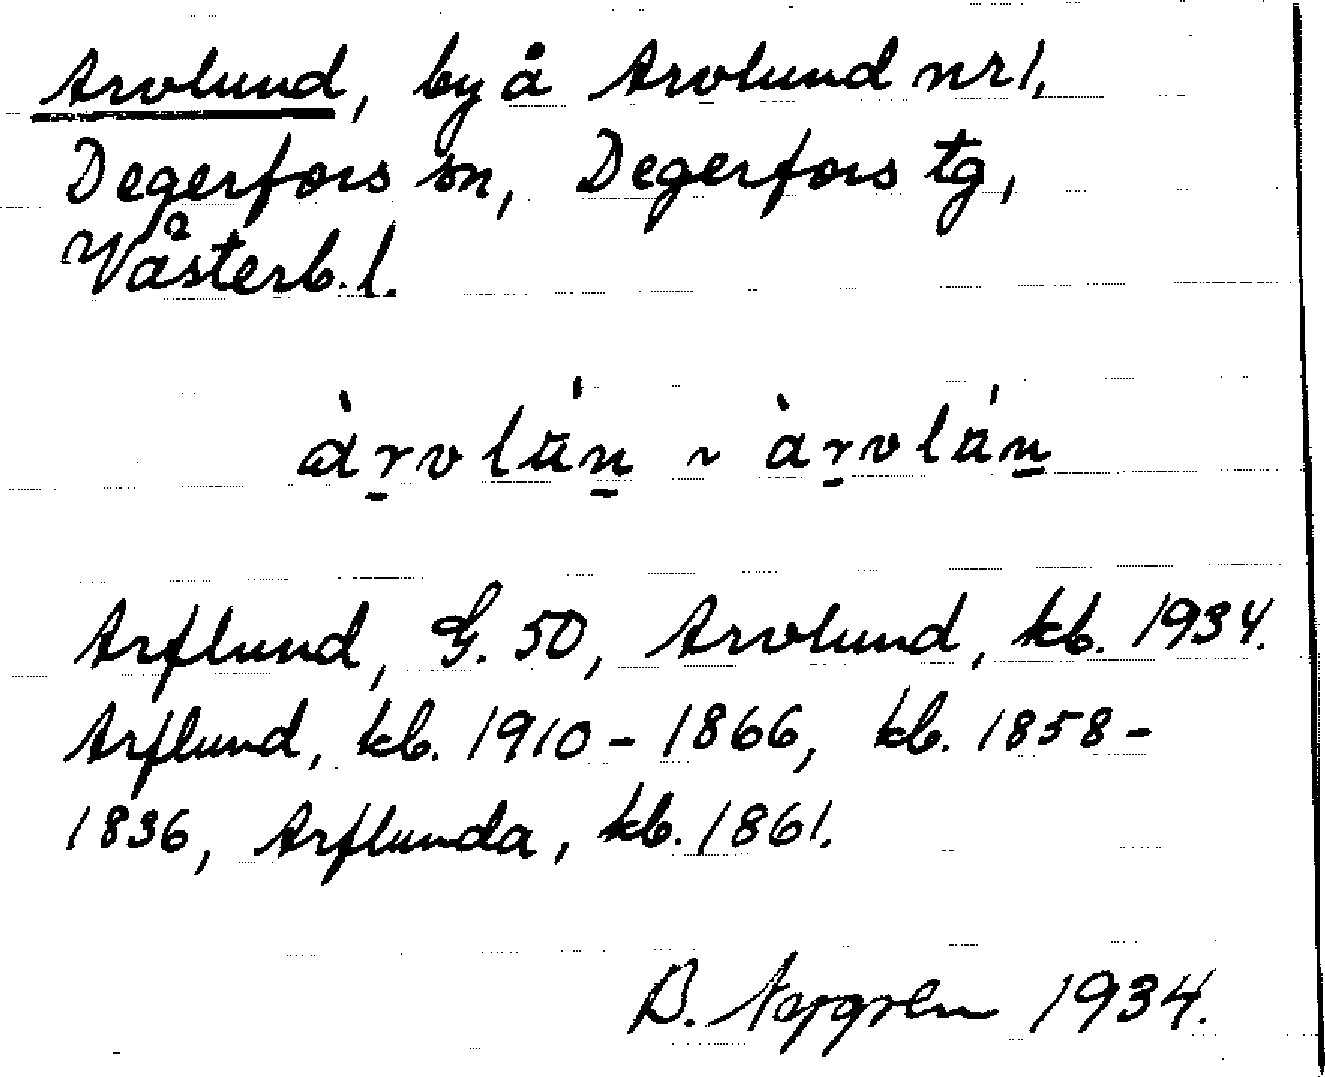 Arvlund, by å Arvlund nr 1,
Degerfors sn, Degerfors tg,
Västerb. l.
àrvlún ~ àrvlún
Arflund, G. 50, Arvlund, kb. 1934.
Arflund, kb. 1910 - 1866, kb. 1858 -
1836, Arflunda, kb. 1861.
B. 1934.